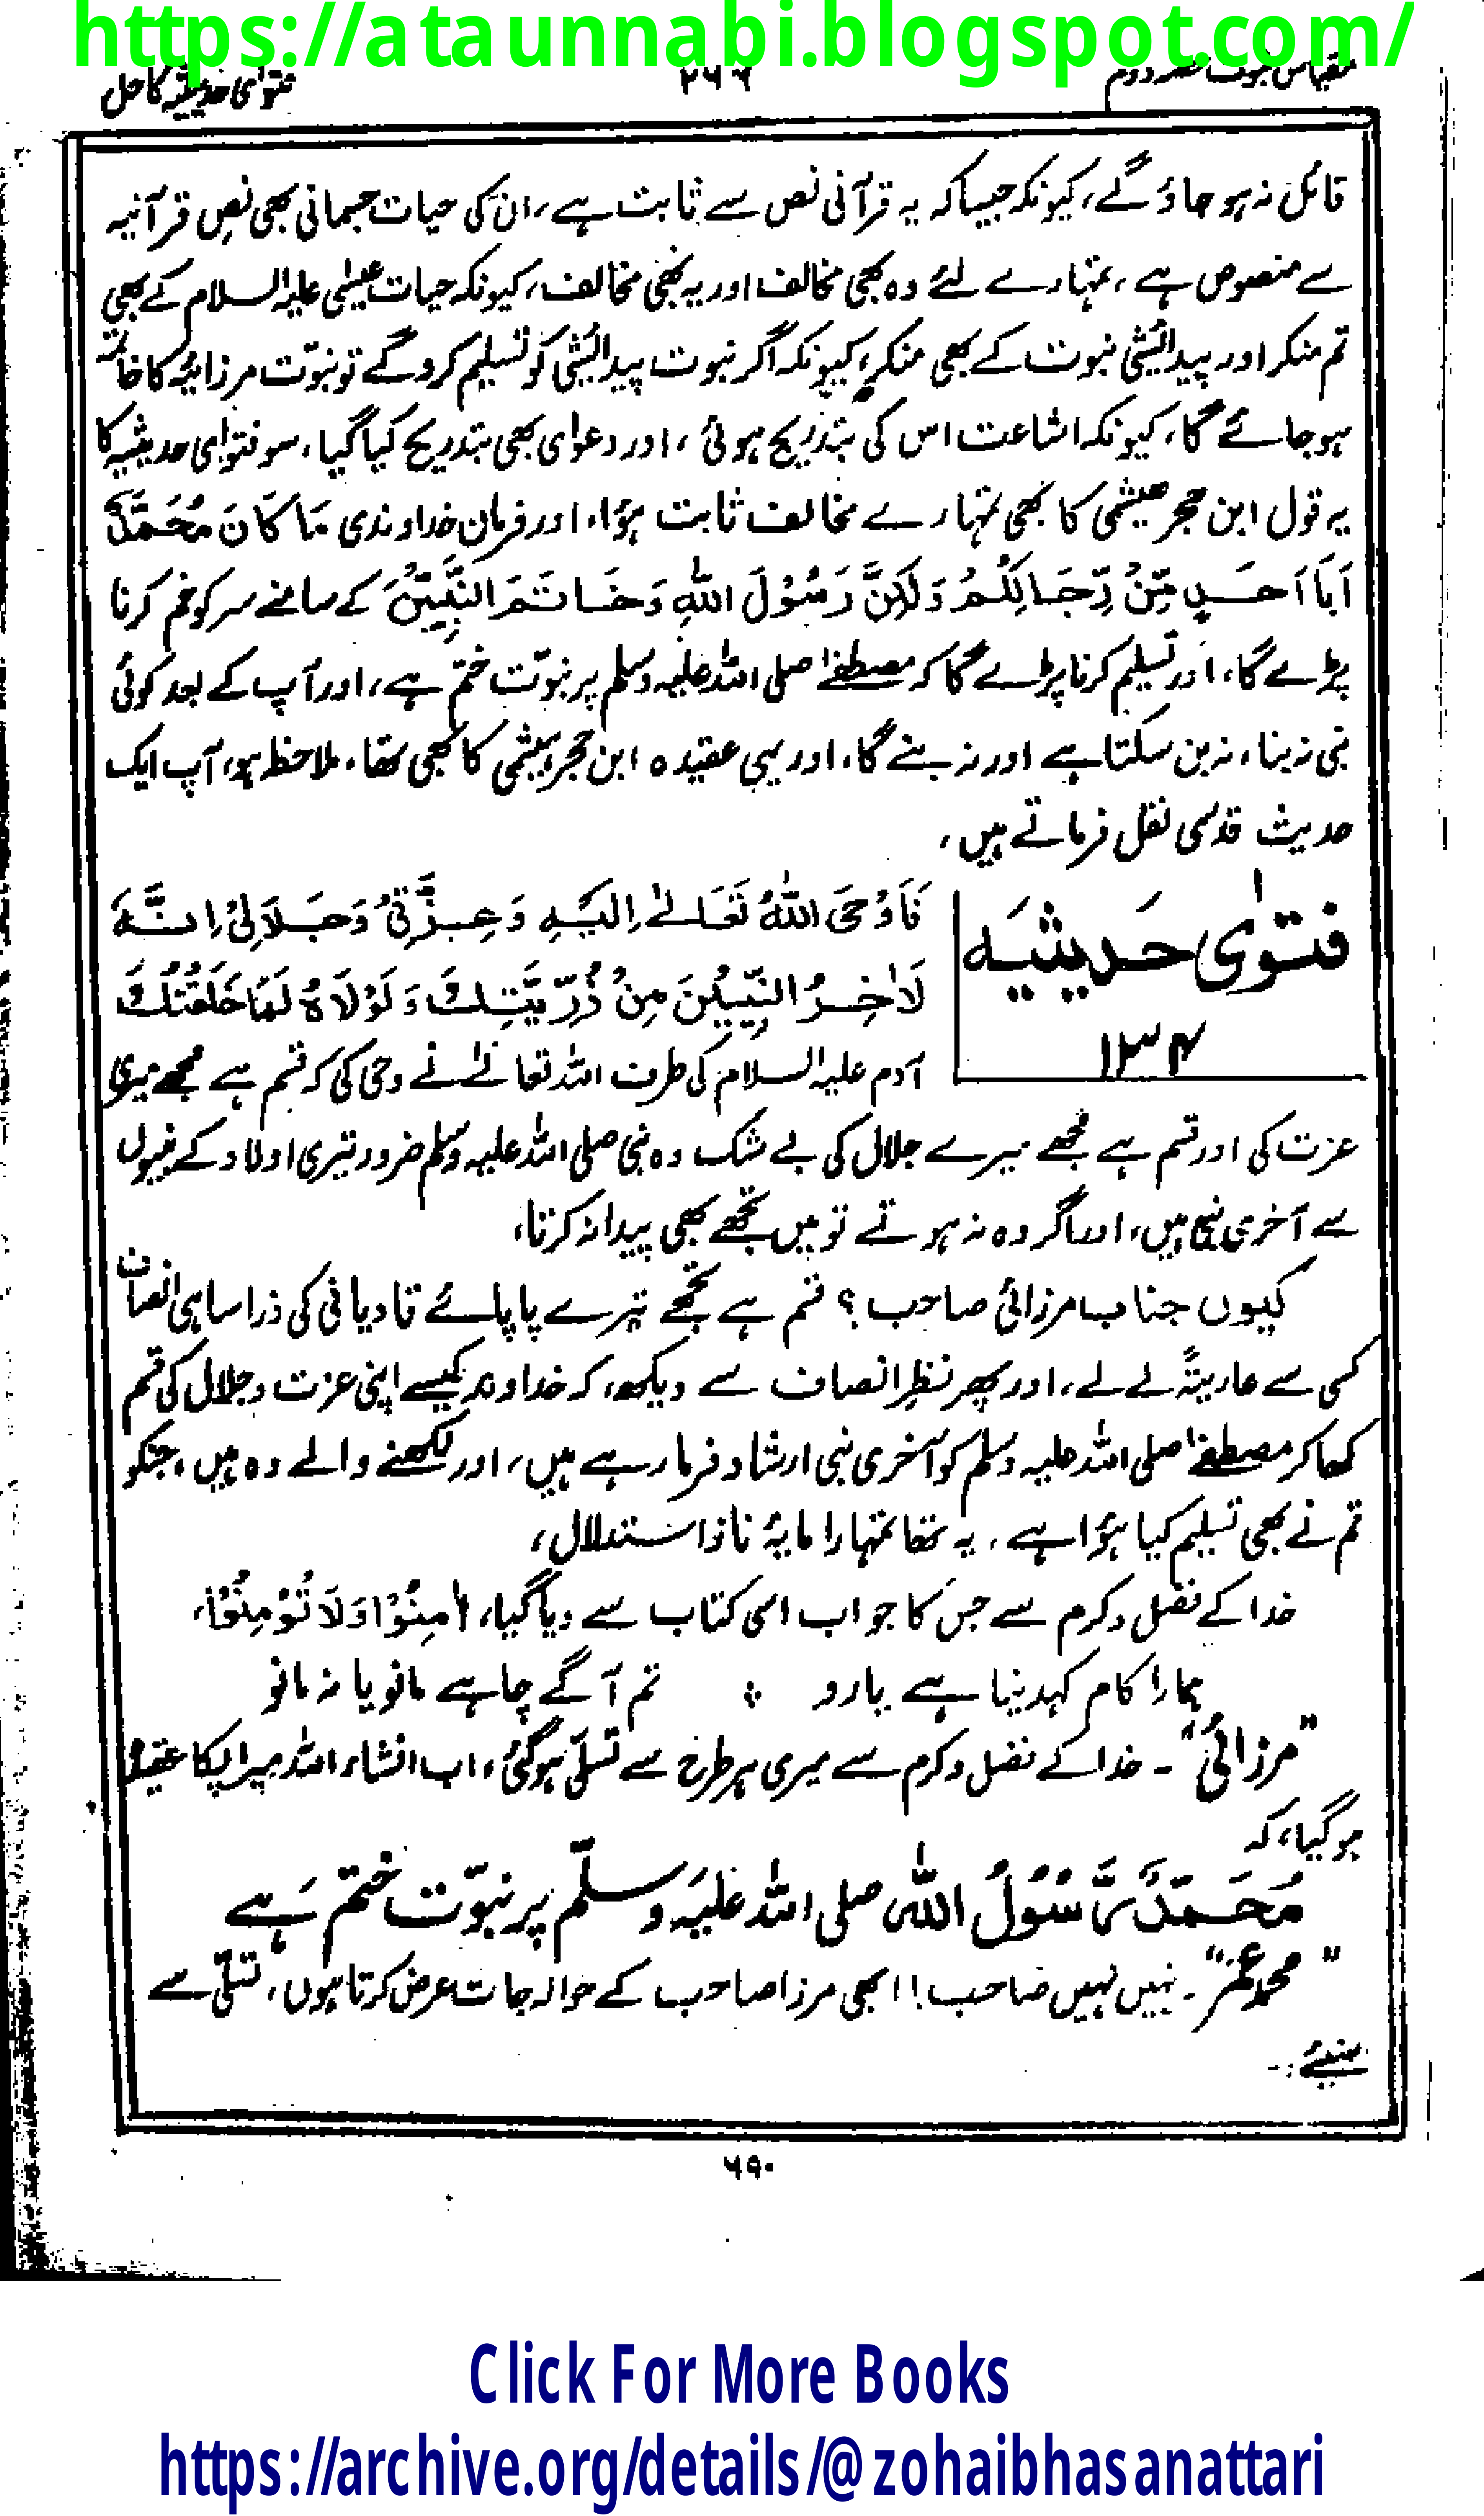 https://ataunnabi.blogspot.com/
مقیاس نبوت حصہ دوم
۲۶۶
فتوٰی حدیثیہ کا حل
قائل نہ ہو جاؤ گے، کیونکہ جیسا کہ یہ قرآنی نص سے ثابت ہے، ان کی حیات جسمانی بھی نصِ قرآنیہ
سے منصوص ہے، تمہارے لئے وہ بھی مخالف اور یہ بھی مخالف، کیونکہ حیات عیسٰی علیہ السلام کے بھی
تم منکر اور پیدائشی نبوت کے بھی منکر، کیونکہ اگر نبوت پیدائشی کو تسلیم کرو گے تو نبوّت مرزائیہ کا خاتمہ
ہو جائے گا، کیونکہ اشاعت اس کی بتدریج ہوئی، اور دعوای بھی بتدریج کیا گیا، سو فتوٰی حدیثیہ کا
یہ قول ابن حجر ھیثمی کا بھی تمہارے مخالف ثابت ہؤا، اور فرمان خداوندی مَا كَانَ مُحَمَّدٌ
اَبَآ اَحَدٍ مِّنْ رِّجَالِكُمْ وَلٰكِنَّ رَسُوْلَ اللّٰهِ وَخَاتَمَ النَّبِيّٖنَ کے سامنے سر کو خم کرنا
پڑے گا، اور تسلیم کرنا پڑے گا کہ مصطفےٰ صلی اللہ علیہ وسلم پر نبوّت ختم ہے، اور آپ کے بعد کوئی
نبی نہ بنا، نہ بن سکتا ہے اور نہ بنے گا، اور یہی عقیدہ ابن حجر ہیثمی کا بھی تھا، ملاحظہ ہو، آپ ایک
حدیث قدسی نقل فرماتے ہیں،
فتوٰی حَدیثیَہ
۱۳۴
فَاَوْحَى اللّٰهُ تَعَالٰى اِلَيْهِ وَعِزَّتِيْ وَجَلَالِيْ اِنَّهٗ
لَاٰخِرُ النَّبِيِّيْنَ مِنْ ذُرِّيَّتِكَ وَلَوْلَاهُ لَمَا خَلَقْتُكَ
آدم علیہ السلام کی طرف اللہ تعالےٰ نے وحی کی کہ قسم ہے مجھے میری
عزت کی اور قسم ہے مجھے میرے جلال کی بے شک وہ نبی صلی اللہ علیہ وسلم ضرور تیری اولاد کے نبیوں
سے آخری نبی ہیں، اور اگر وہ نہ ہوتے تو میں تجھے بھی پیدا نہ کرتا،
کیوں جناب مرزائی صاحب؟ قسم ہے تجھے تیرے پاپائے قادیانی کی ذرا سا ہی انصاف
کسی سے عاریتہً لے لے، اور پھر نظرِ انصاف سے دیکھ، کہ خداوند کیسے اپنی عزت و جلال کی قسم
کھا کر مصطفےٰ صلی اللہ علیہ وسلم کو آخری نبی ارشاد فرما رہے ہیں، اور لکھنے والے وہ ہیں، جنکو
تم نے بھی تسلیم کیا ہؤا ہے، یہ تھا تمہارا مایۂ ناز استدلال،
خدا کے فضل و کرم سے جس کا جواب اسی کتاب سے دیا گیا، اٰمِنُوْا اَوْ لَا تُؤْمِنُوْا،
ہمارا کام کہدینا ہے یارو ؞ تم آگے چاہے مانو یا نہ مانو
"مرزائی"۔ خدا کے فضل و کرم سے میری ہر طرح سے تسلّی ہو گئی، اب انشاء اللہ میرا پکا عقیدہ
ہو گیا، کہ
مُحَمَّدٌ رَّسُوْلُ اللّٰہ صلی اللہ علیہ وسلّم پر نبوّت ختم ہے
"محمد عمر"۔ نہیں نہیں صاحب!! ابھی مرزا صاحب کے حوالہ جات عرض کرتا ہوں، تسلّی سے
سنیئے:۔
۶۹۰
Click For More Books
https://archive.org/details/@zohaibhasanattari